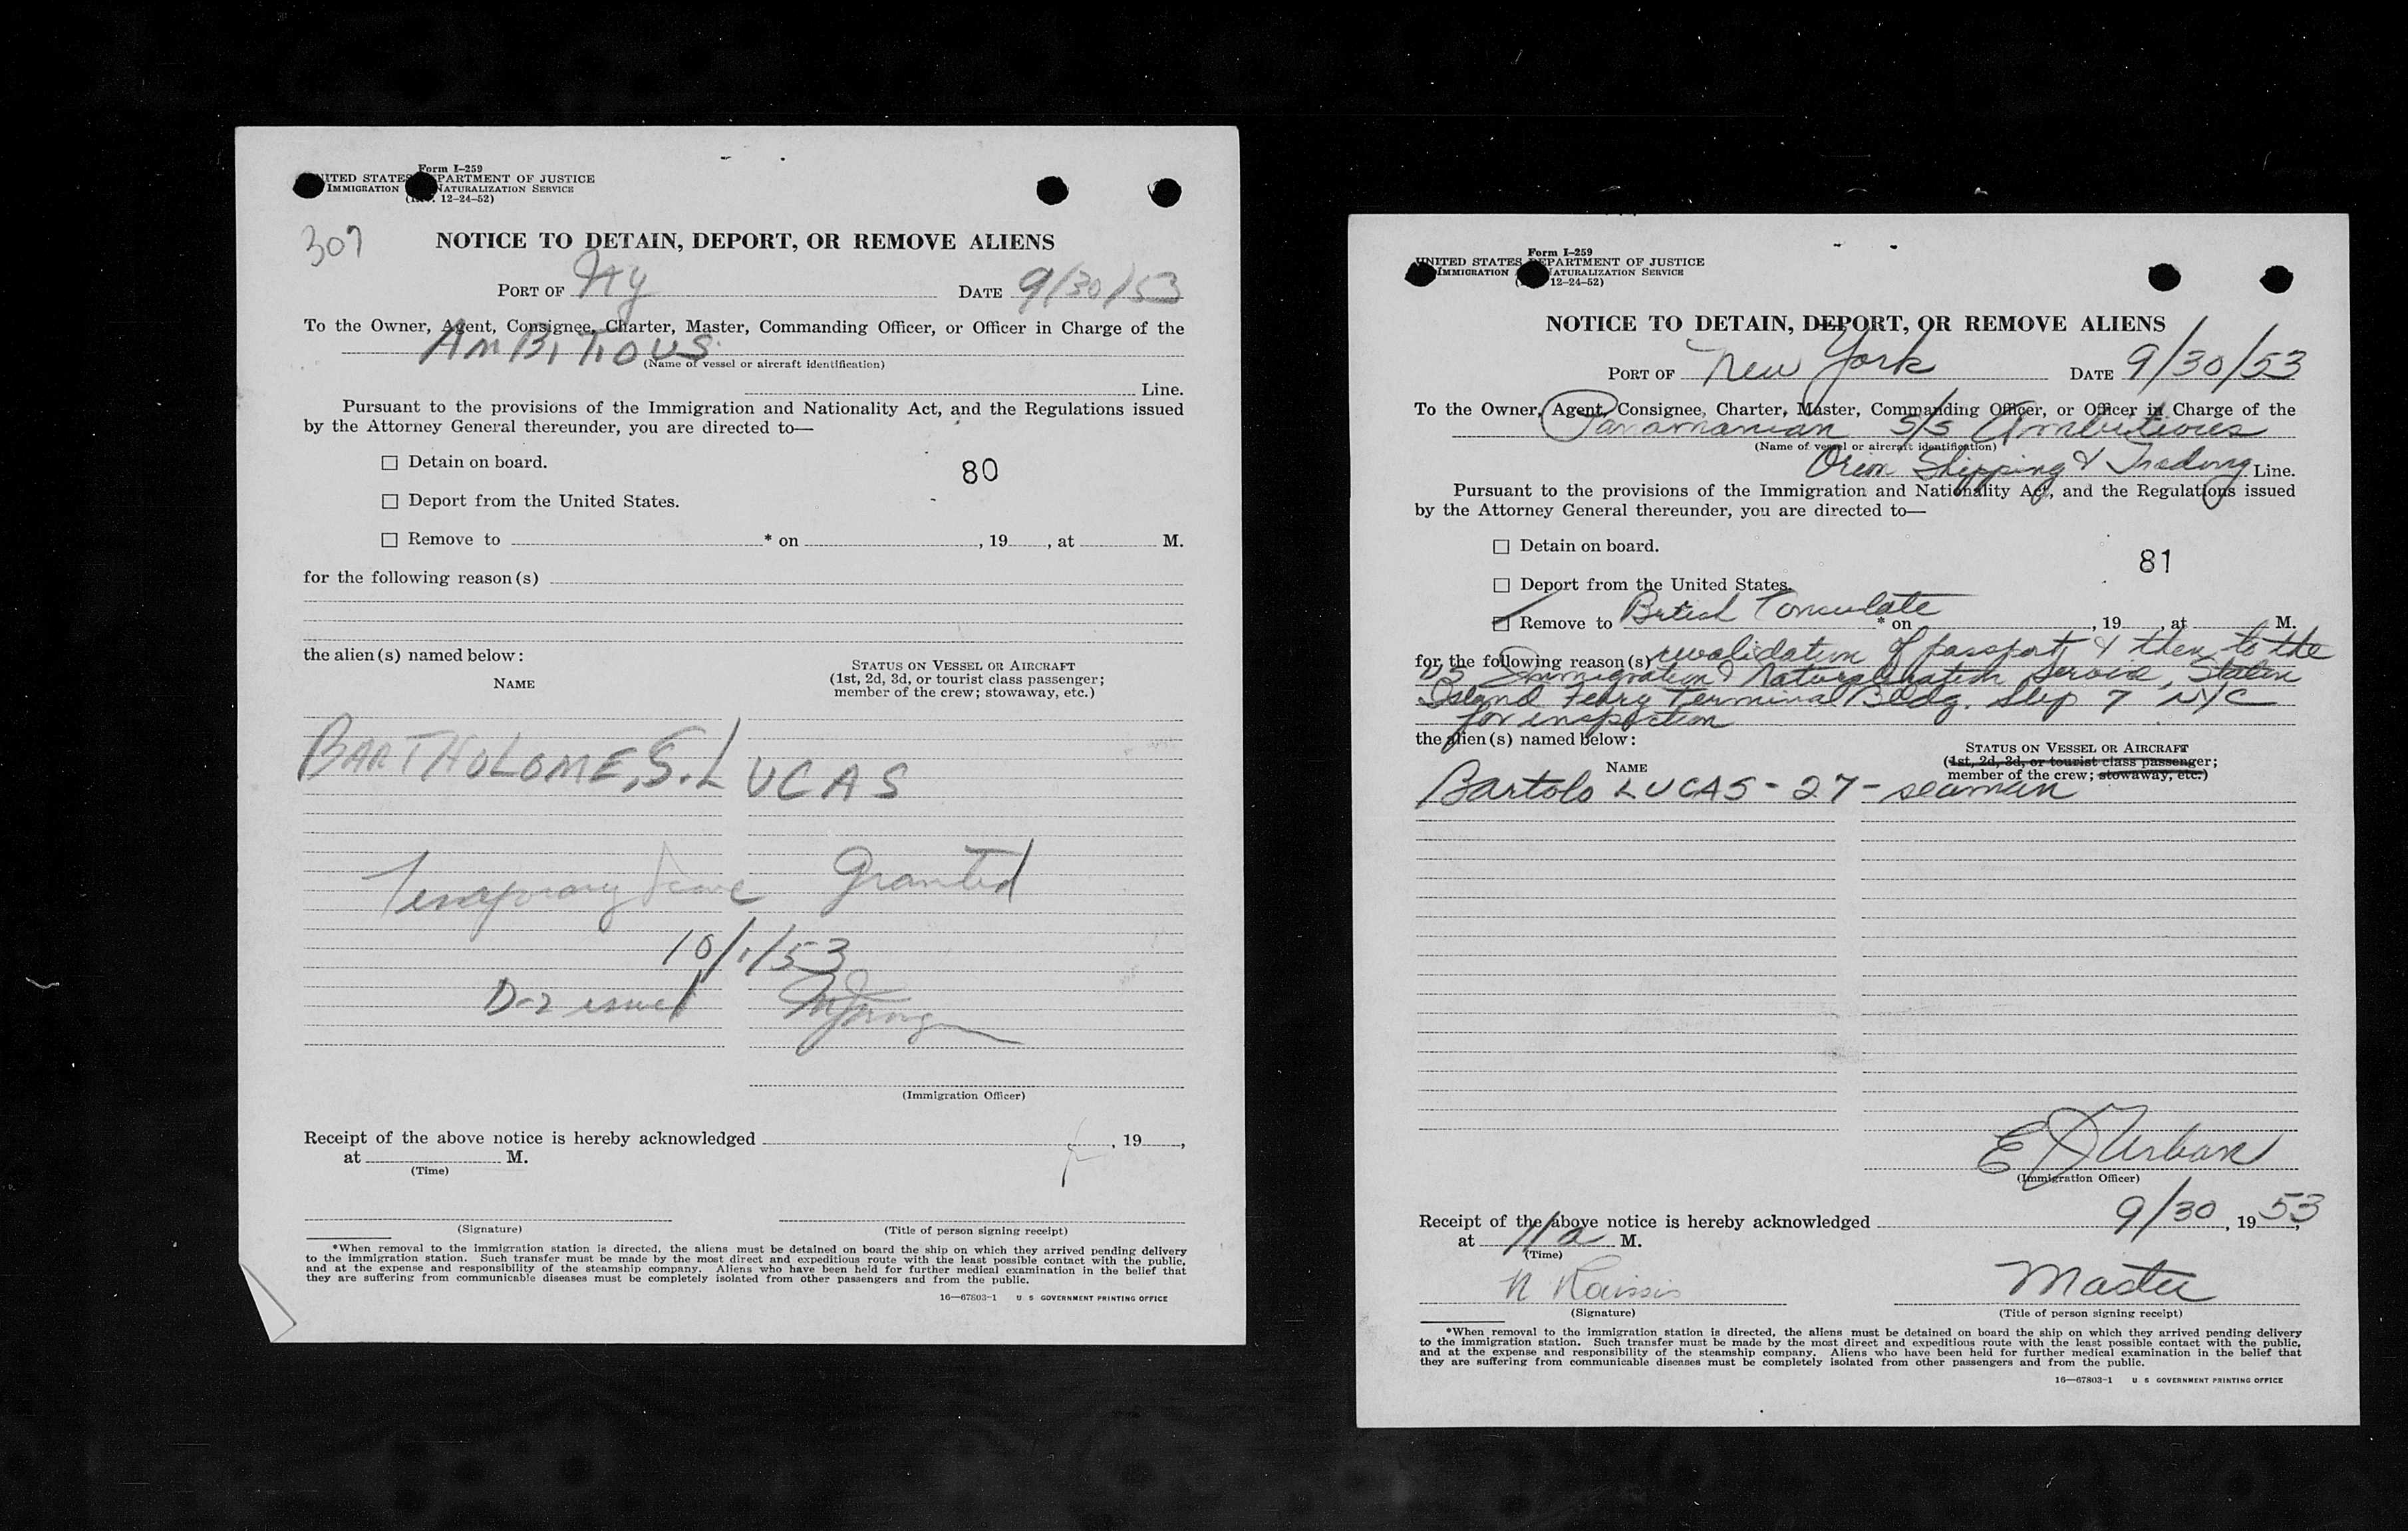 Form I-259
UNITED STATES DEPARTMENT OF JUSTICE
IMMIGRATION NATURALIZATION SERVICE
12-24-52)
307
NOTICE TO DETAIN, DEPORT, OR REMOVE ALIENS
PORT OF NY DATE 9/30/53
To the Owner, Agent, Consignee, Charter, Master, Commanding Officer, or Officer in Charge of the
AMBITIOUS
(Name of vessel or aircraft identification)
Line.
Pursuant to the provisions of the Immigration and Nationality Act, and the Regulations issued
by the Attorney General thereunder, you are directed to—
☐ Detain on board.
80
☐ Deport from the United States.
☐ Remove to * on , 19 , at M.
for the following reason(s)
the alien(s) named below:
NAME
STATUS ON VESSEL OR AIRCRAFT
(1st, 2d, 3d, or tourist class passenger;
member of the crew; stowaway, etc.)
BARTHOLOME, S. LUCAS
Temporary Granted
10/1/53
D-2 issued
(Immigration Officer)
Receipt of the above notice is hereby acknowledged , 19 ,
at M.
(Time)
(Signature) (Title of person signing receipt)
*When removal to the immigration station is directed, the aliens must be detained on board the ship on which they arrived pending delivery
to the immigration station. Such transfer must be made by the most direct and expeditious route with the least possible contact with the public,
and at the expense and responsibility of the steamship company. Aliens who have been held for further medical examination in the belief that
they are suffering from communicable diseases must be completely isolated from other passengers and from the public.
16—67803-1 U S GOVERNMENT PRINTING OFFICE
Form I-259
UNITED STATES DEPARTMENT OF JUSTICE
IMMIGRATION NATURALIZATION SERVICE
12-24-52)
NOTICE TO DETAIN, DEPORT, OR REMOVE ALIENS
PORT OF New York DATE 9/30/53
To the Owner, Agent, Consignee, Charter, Master, Commanding Officer, or Officer in Charge of the
Panamanian S/S Ambitious
(Name of vessel or aircraft identification)
Shipping & Trading Line.
Pursuant to the provisions of the Immigration and Nationality Act, and the Regulations issued
by the Attorney General thereunder, you are directed to—
☐ Detain on board.
81
☐ Deport from the United States.
☑ Remove to British Consulate * on , 19 , at M.
for the following reason(s) revalidation of passport & then to the
US Immigration & Naturalization Service, Staten
Island Ferry Terminal Bldg. Slip 7 NYC
for inspection
the alien(s) named below:
NAME
STATUS ON VESSEL OR AIRCRAFT
(1st, 2d, 3d, or tourist class passenger;
member of the crew; stowaway, etc.)
Bartolo LUCAS - 27 - seaman
E J Urban
(Immigration Officer)
Receipt of the above notice is hereby acknowledged 9/30, 19 53,
at 11 a M.
(Time)
N Master
(Signature) (Title of person signing receipt)
*When removal to the immigration station is directed, the aliens must be detained on board the ship on which they arrived pending delivery
to the immigration station. Such transfer must be made by the most direct and expeditious route with the least possible contact with the public,
and at the expense and responsibility of the steamship company. Aliens who have been held for further medical examination in the belief that
they are suffering from communicable diseases must be completely isolated from other passengers and from the public.
16—67803-1 U S GOVERNMENT PRINTING OFFICE